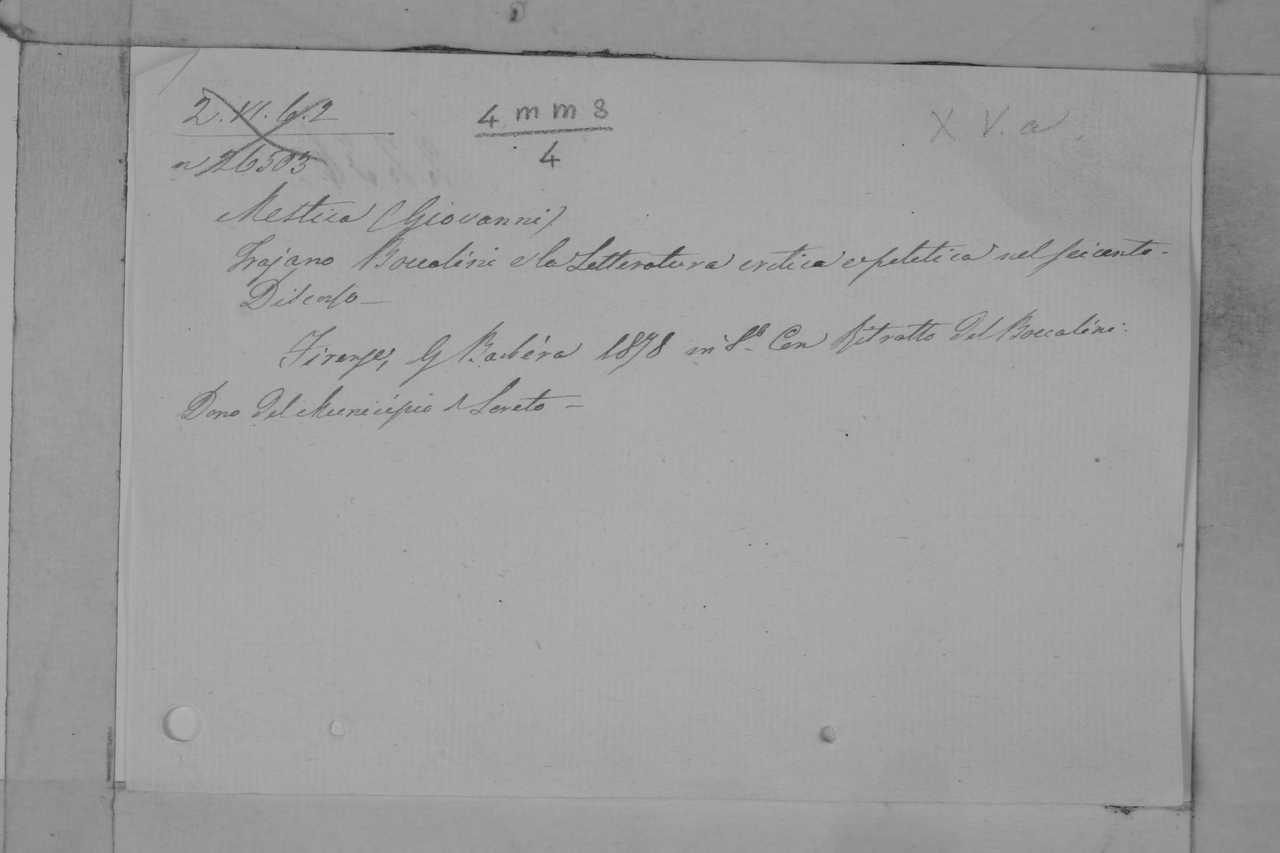 2.VI.6.2
n 26503
4 m m 8
4
X V. a.
Mestica (Giovanni)
Trajano Boccalini e la Letteratura critica e politica nel seicento -
Discorso -
Firenze, G Barbéra 1878 in 8º Con Ritratto del Boccalini.
Dono del Municipio di Loreto -